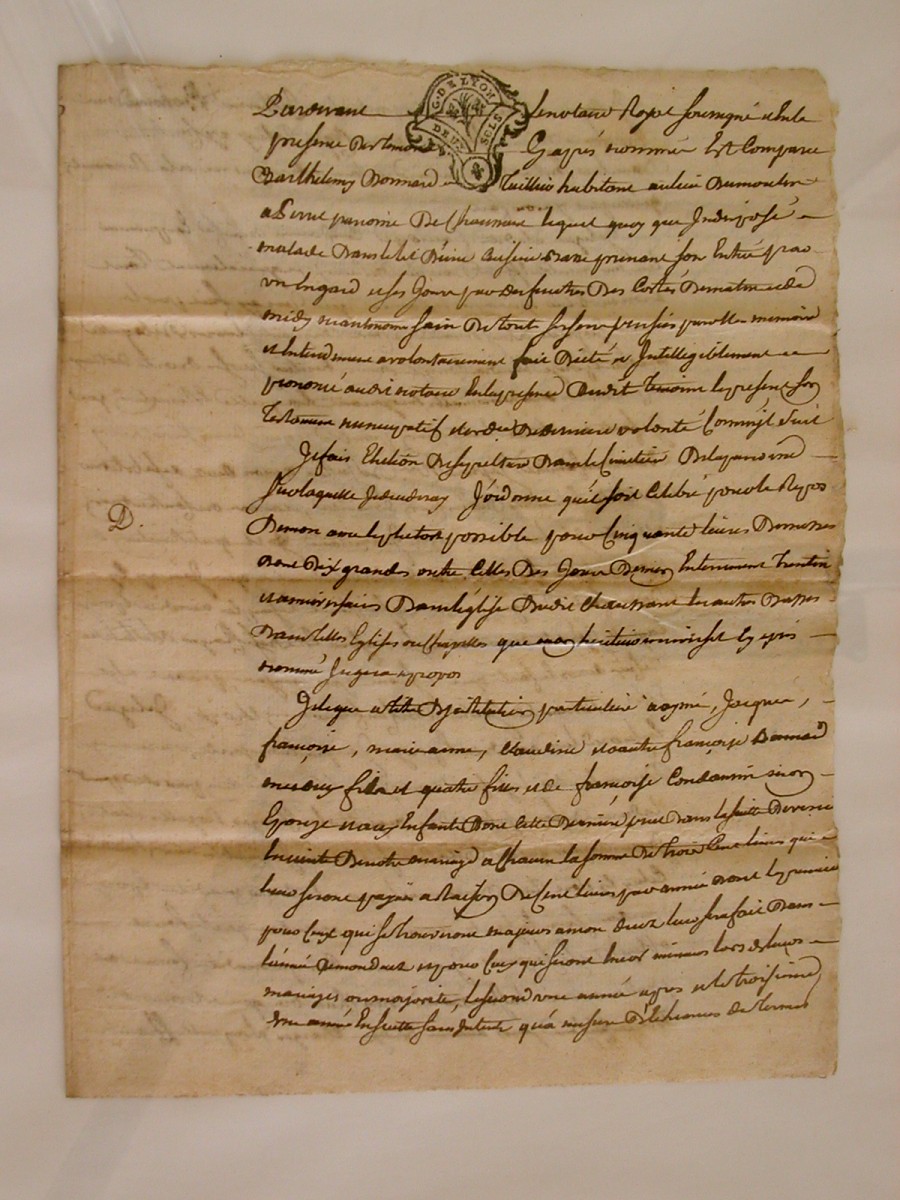 G. DE LYON
DEUX SOLS
Pardevant le notaire Royal soussigné et en la
presence des temoins Cy après nommés Est Comparu
Barthelemy Bonnard habitant au lieu Dumoulin
paroisse De Chaussan lequel quoy que Indisposé
malade Dans le lit prenant son Entrée par
un Engard et ses Jours par des fenetres Des Cotés De matin et de
midy neantmoins sain De tout ses sens pensées parolle memoire
et Entendement a volontairement fait Dicté et Intelligiblement
prononcé audit notaire En la presence Desdit temoins le present son
Testament nuncupatif et ordce De Derniere volonté Comm'il suit
Je fais Election De sepulture Dans le Cimetiere De la paroisse
sur laquelle Je decederay J'ordonne qu'il soit Celebré pour le Repos
D.
De mon ame le plutost possible pour Cinquante livres De messes
dont Dix grandes outre Celles Des Jours De mon Enterrement Trentin
et anniversaire Dans l'église Dudit Chaussant les autres Basses
Dans telles Eglises ou Chapelles que mon heritier universel Cy après
nommé Jugera apropos
Je legue a titre D'institution particuliere a aymé, Jacques,
françoise, marie anne, Claudine et autre françoise Bonnard
mes deux fils et quatre filles, et de françoise Condamin mon
Epouze et aux Enfants Dont Cette Derniere peut dans la suitte Devenir
Enceinte De notre mariage a Chacun la somme De trois Cent livres qui
leur seront payée a Raison De Cent livres par année dont le premier
pour Ceux qui se trouveront majeurs a mon decez leur sera fait Dans
l'année De mon decez et pour Ceux qui seront lncor mineurs lors de leurs
mariages ou majorité, le second une année apres et le troisieme
une année Ensuitte sans Interets qu'a mesure D'Echeances de Termes